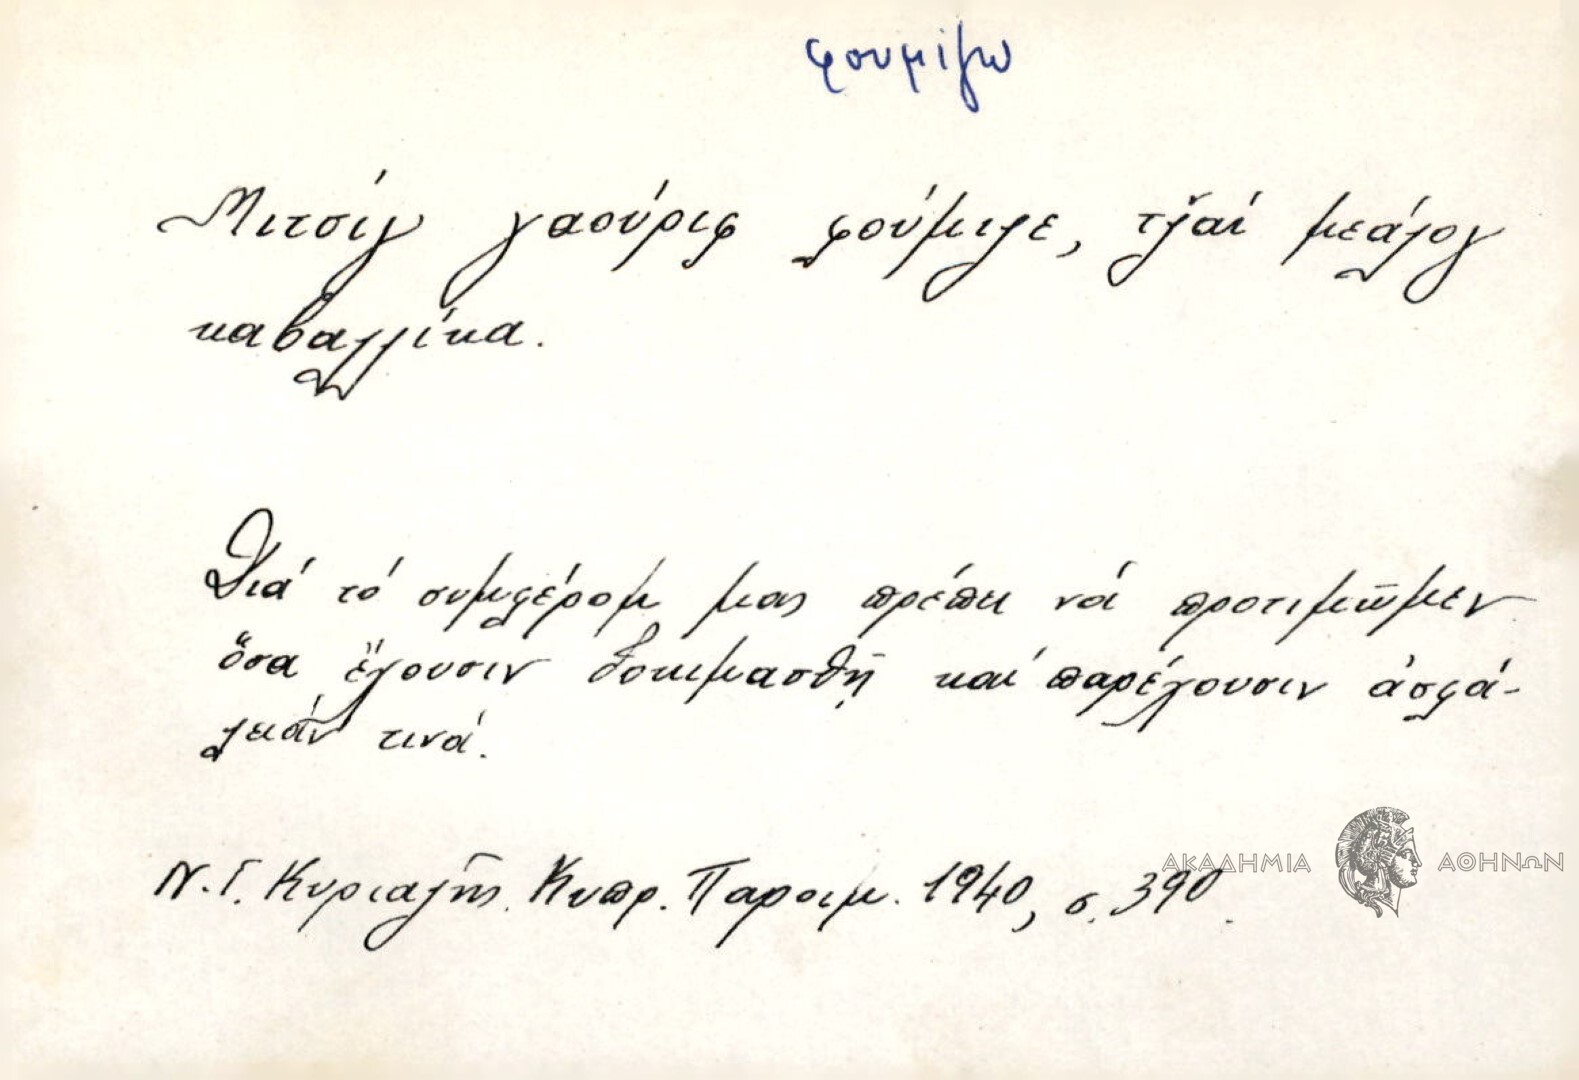 φουμίζω
Μιτσίγ γαούριφ φούμιζε, τζ̌αί μεάλογ
καβαλλίκα.
Διά τό συμφέρομ μας πρέπει νά προτιμῶμεν
ὅσα ἔχουσιν δοκιμασθῆ καί παρέχουσιν ἀσφά-
λειάν τινά.
Ν. Γ. Κυριαζῆς. Κυπρ. Παροιμ. 1940, σ. 390.
ΑΚΑΔΗΜΙΑ ΑΘΗΝΩΝ